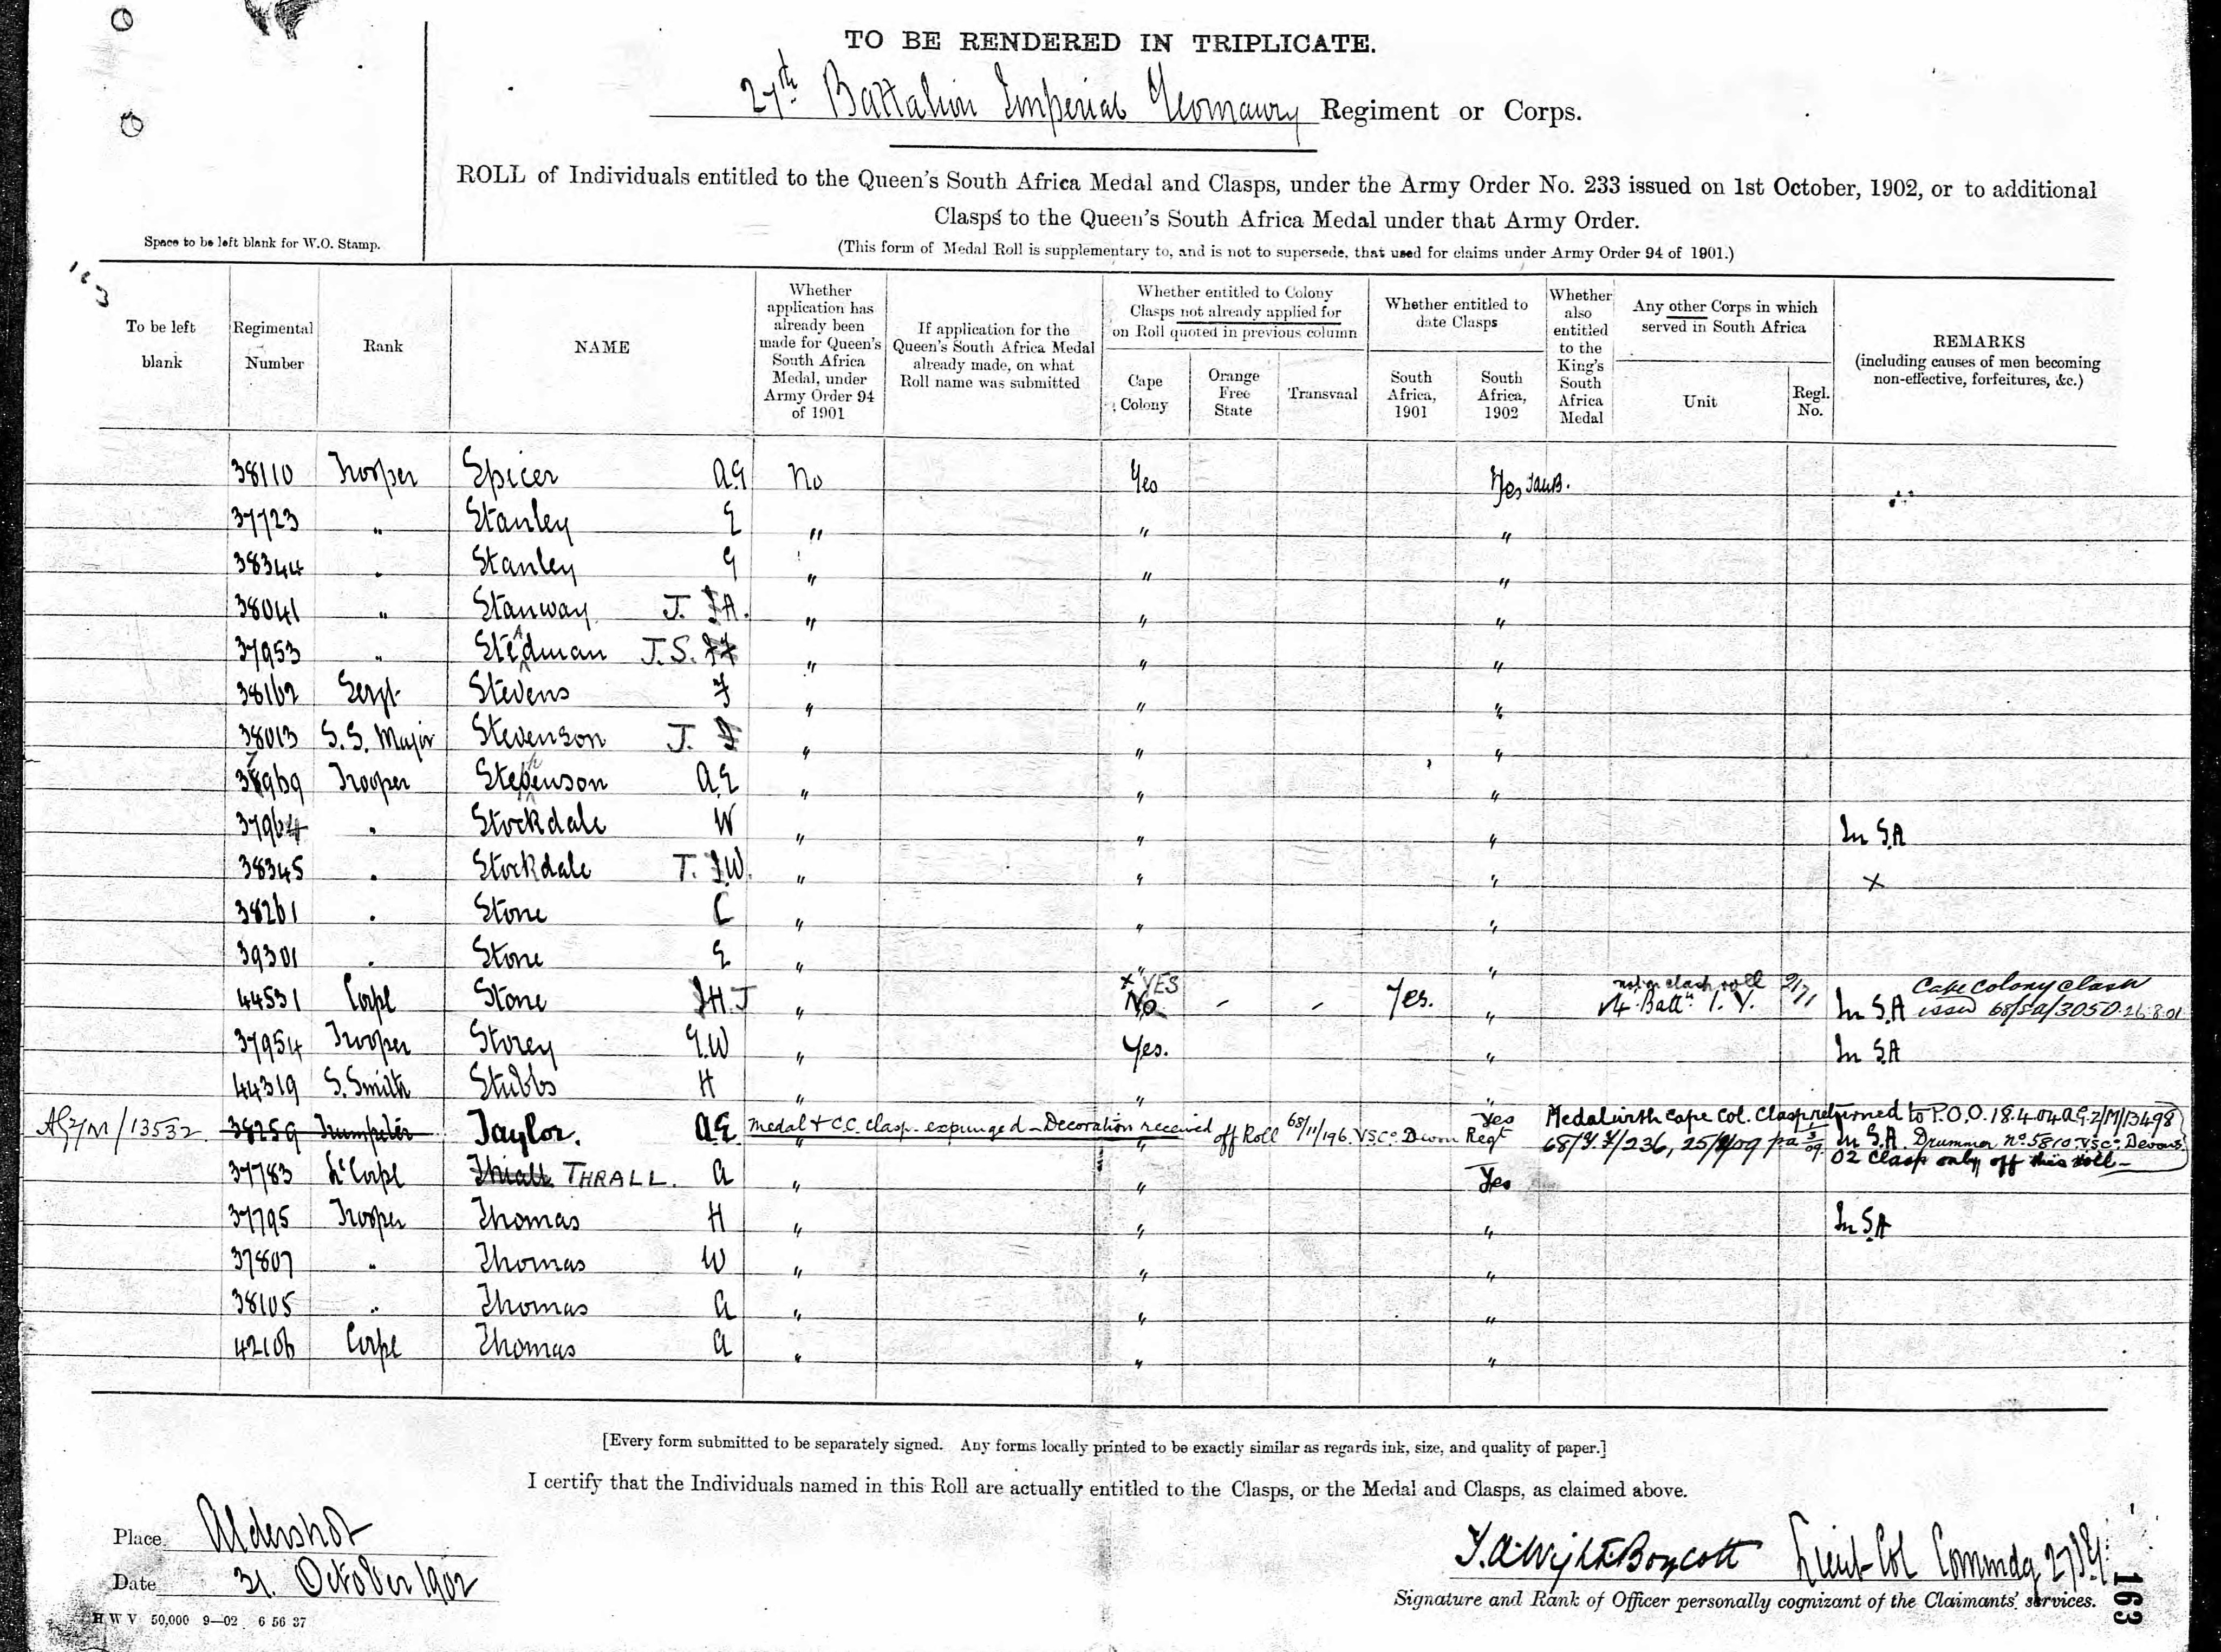 TO BE RENDERED IN TRIPLICATE.
27th Battalion Imperial Yeomanry Regiment or Corps.
ROLL of Individuals entitled to the Queen's South Africa Medal and Clasps, under the Army Order No. 233 issued on 1st October, 1902, or to additional
Clasps to the Queen's South Africa Medal under that Army Order.
(This form of Medal Roll is supplementary to, and is not to supersede, that used for claims under Army Order 94 of 1901.)
Space to be left blank for W.O. Stamp.
163
To be left blank
Regimental Number
Rank
NAME
Whether application has already been made for Queen's South Africa Medal, under Army Order 94 of 1901
If application for the Queen's South Africa Medal already made, on what Roll name was submitted
Whether entitled to Colony Clasps not already applied for on Roll quoted in previous column
Cape Colony
Orange Free State
Transvaal
Whether entitled to date Clasps
South Africa, 1901
South Africa, 1902
Whether also entitled to the King's South Africa Medal
Any other Corps in which served in South Africa
Unit
Regl. No.
REMARKS (including causes of men becoming non-effective, forfeitures, &c.)
38110 Trooper Spicer A.G No Yes Yes
37723 " Stanley E " " "
38344 " Stanley G " " "
38041 " Stanway J. A. " " "
37953 " Steadman J.S. " " "
38162 Sergt Stevens F " " "
38013 S.S. Major Stevenson J. " " "
37969 Trooper Stephenson A.E " " "
37964 " Stockdale W " " " In S.A
38345 " Stockdale T. W. " " " x
38261 " Stone C " " "
39301 " Stone E " " "
44531 Corpl Stone H.J " x YES No - - Yes. " not on clasp roll 14 Battn I.Y. In S.A Cape Colony clasp issued 68/SA/3050. 26.8.01
37954 Trooper Storey G.W " Yes. " In S.A
44319 S. Smith Stubbs H " " "
AG7/M/13532 38259 Trumpeter Taylor. A.E. Medal & C.C. clasp expunged - Decoration received off Roll 68/11/196. V.S.Co Devon Regt Yes Medal with Cape Col. Clasp returned to P.O.O. 18.4.04 AG.2/M/13498
In S.A Drummer No 5810 V.S.Co Devons
02 clasp only off this roll -
37783 L'Corpl THRALL. A " " Yes
37795 Trooper Thomas H " " " In S.A
37807 " Thomas W " " "
38105 " Thomas A " " "
42106 Corpl Thomas A " " "
[Every form submitted to be separately signed. Any forms locally printed to be exactly similar as regards ink, size, and quality of paper.]
I certify that the Individuals named in this Roll are actually entitled to the Clasps, or the Medal and Clasps, as claimed above.
Place Aldershot
Date 31. October 1902
Wight-Boycott Lieut Col Commdg 27 I.Y.
Signature and Rank of Officer personally cognizant of the Claimants' services.
H W V 50,000 9—02 6 56 37
163